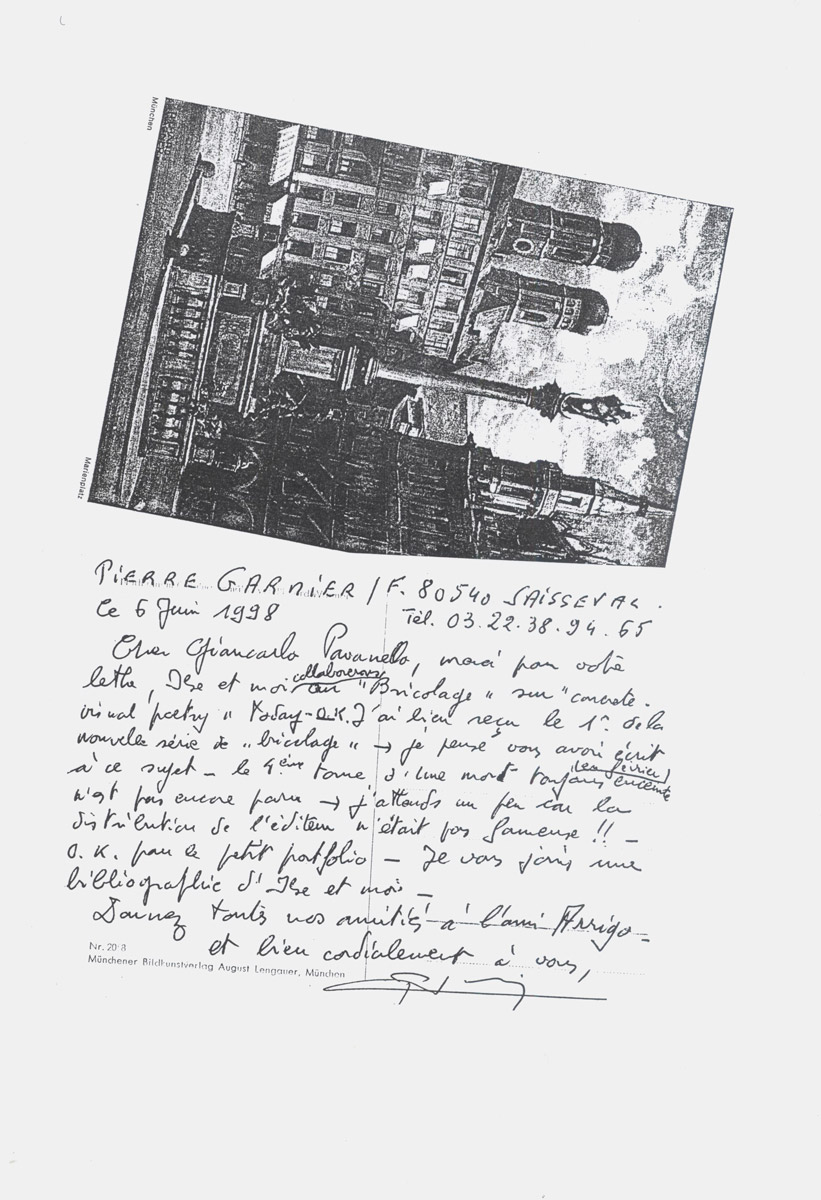 München
Marienplatz
PIERRE GARNIER / F. 80540 SAISSEVAL.
Le 6 Juin 1998
Tél. 03.22.38.94.65
Cher Giancarlo Pavanello, merci pour votre
lettre, Ilse et moi collaborerons au "Bricolage" sur "concrete-
visual poetry" today - O.K. J'ai bien reçu le 1er de la
nouvelle série de "bricolage" → je pense vous avoir écrit
à ce sujet - le 4ème tome d'une mort toujours enceinte
(en février)
n'est pas encore paru → j'attends un peu car la
distribution de l'éditeur n'était pas fameuse !! -
O.K. pour le petit portfolio - Je vous joins une
bibliographie d'Ilse et moi -
Donnez toutes nos amitiés à l'ami Arrigo -
et bien cordialement à vous,
Nr. 20
Münchener Bildkunstverlag August Lengauer, München